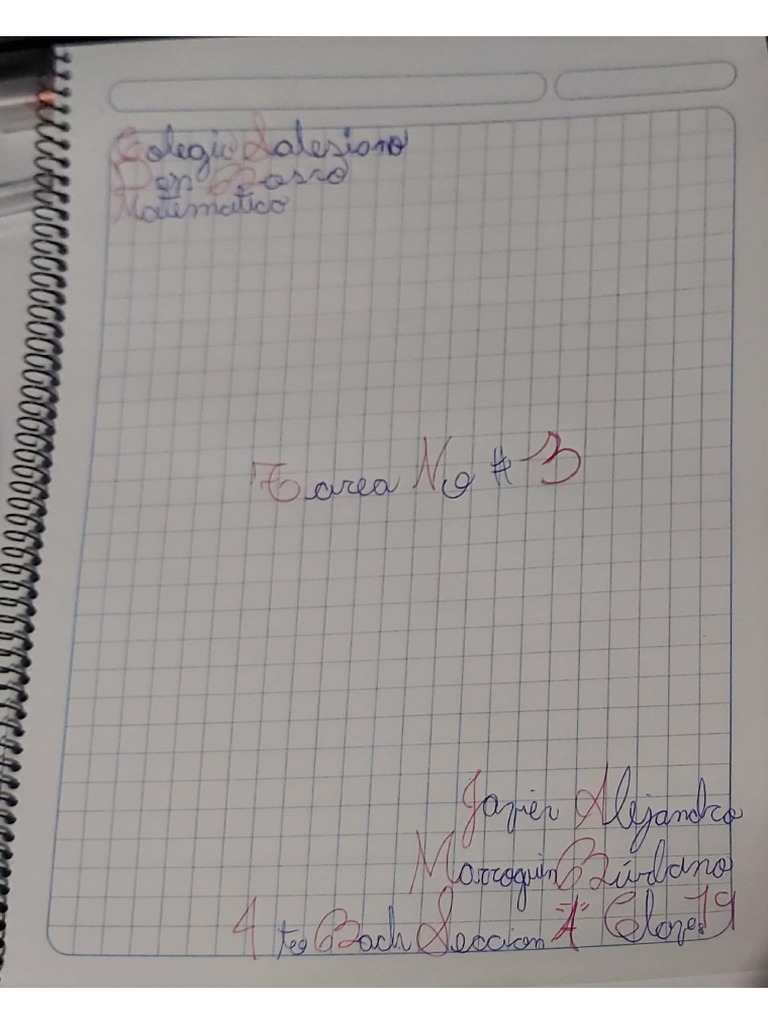 Colegio Salesiano
Don Bosco
Matematica
Tarea No # 3
Javier Alejandro
Marroquin Burbano
4 to Bach Seccion "A" Clave: 19